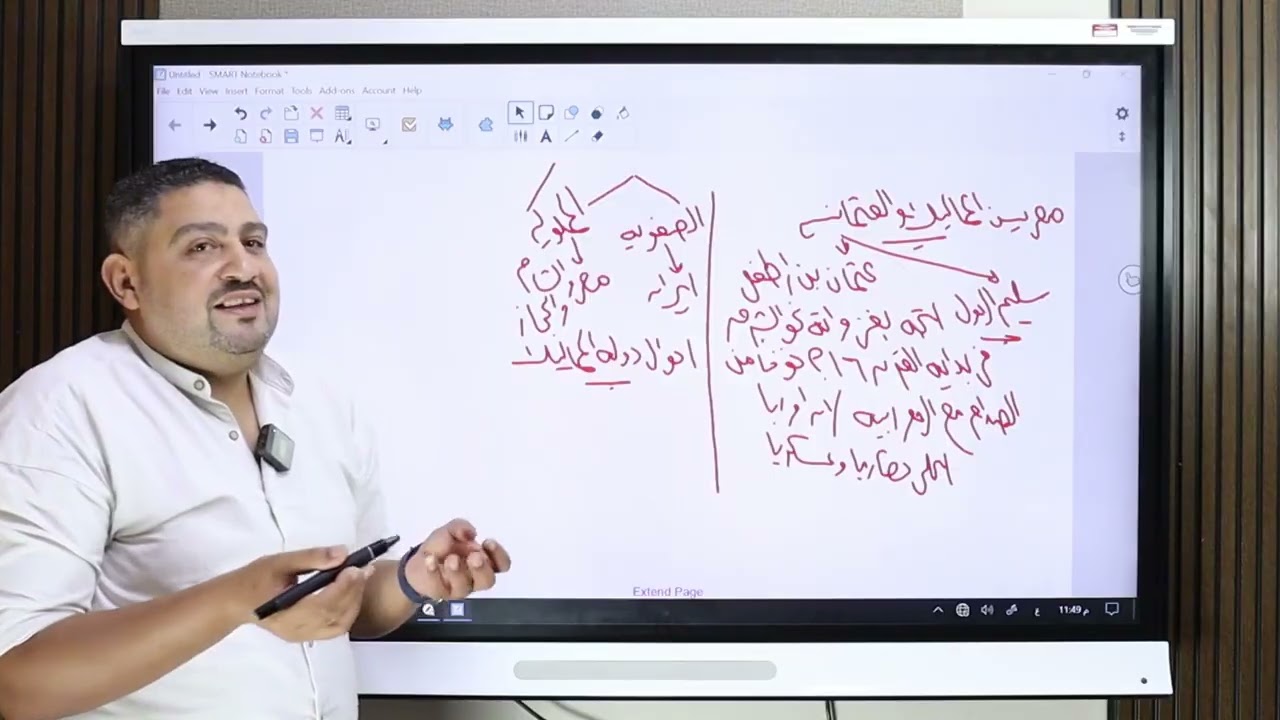 Untitled - SMART Notebook *
File Edit View Insert Format Tools Add-ons Account Help
مصر بين المماليك والعثمانيين
عثمان بن ارطغرل
سليم الاول اتجه بغزواته نحو الشرق
في بداية القرن ١٦م خوفا من
الصدام مع اوروبا
حضاريا وعسكريا
الصفوية
ايران
المملوكية
مصر والشام
والحجاز
احوال دولة المماليك
Extend Page
ع
11:49 م